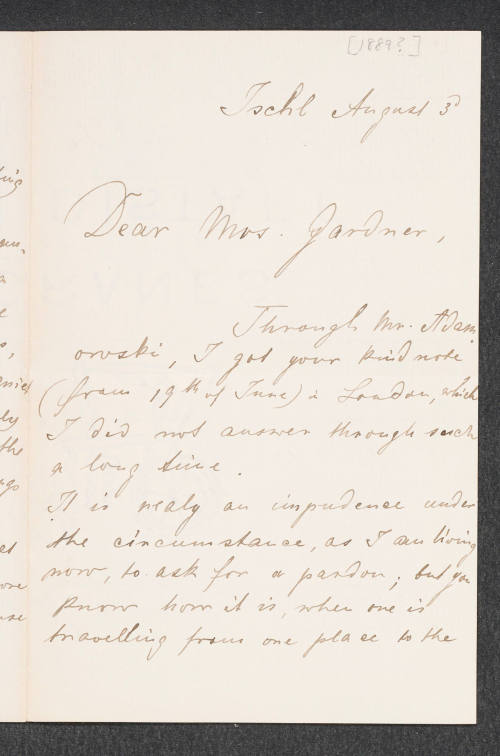 [1889?]
Ischl August 3d
Dear Mrs. Gardner,
Through Mr. Adam
orvski, I got your kind note
(from 19th of June) in London, which
I did not answer through such
a long time.
It is realy an impudence under
the circumstance, as I am living
now, to ask for a pardon; but you
know how it is, when one is
travelling from one place to the